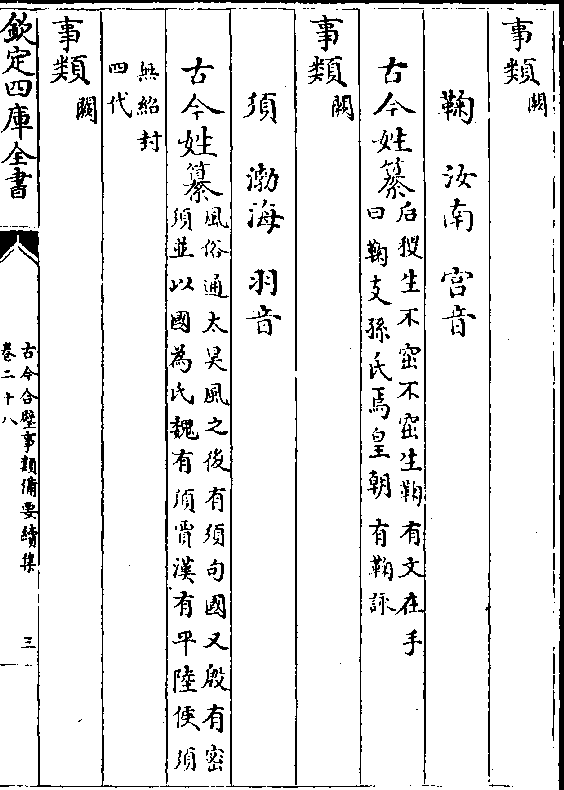 事類闕
鞠 汝南 宮音
古今姓纂后稷生不窋不窋生鞠有文在手
曰鞠支孫氏焉皇朝有鞠詠
事類闕
須 渤海 羽音
古今姓纂風俗通太昊風之後有須句國又殷有密
須並以國為氏魏有須賈漢有平陸便須
無紹封
四代
事類闕
欽定四庫全書
古今合璧事類備要續集
卷二十八
三